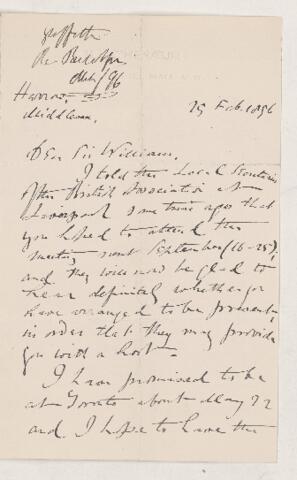 Griffith
Re Park Apr.
/96
Harrow,
Middlesex.
29 Feb. 1896
Dear Sir William,
I told the Local Secretaries
of the British Association at
Liverpool some time ago that
you hoped to attend the
meeting next September (16-23);
and they would now be glad to
hear definitely whether you
have arranged to be present,
in order that they may provide
you with a host.
I have promised to be
at Toronto about May 22
and I hope to leave the